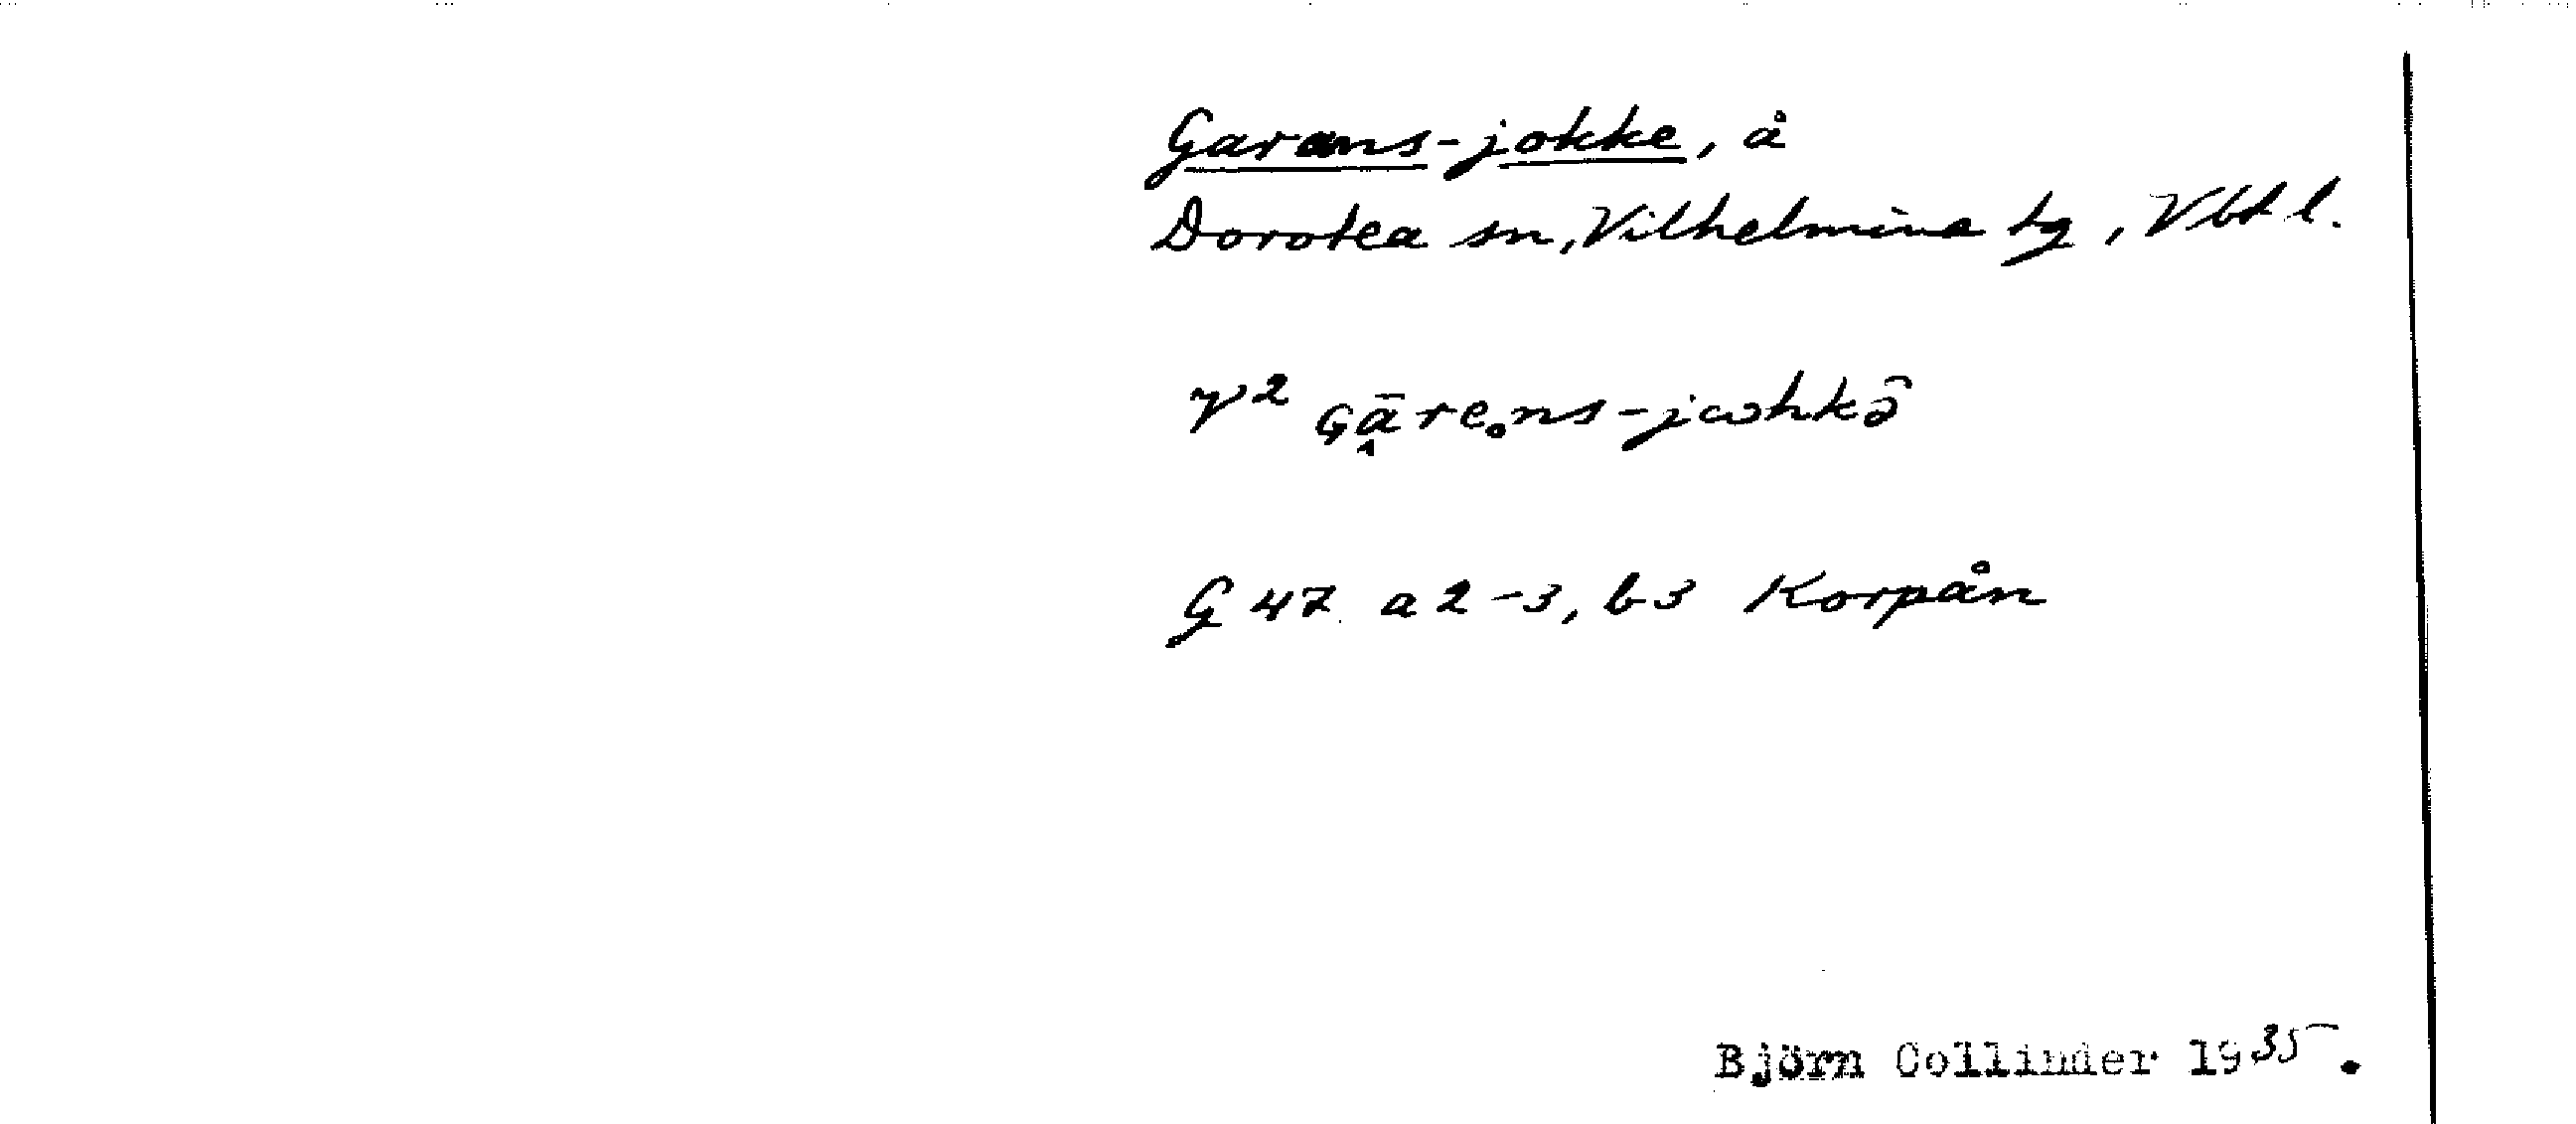 Garans-jokke, å
Dorotea sn, Vilhelmina tg, Vbt l.
V² Gā̭re̥ns-jωhkə̑
G 47 a 2-3, b3 Korpån
Björn Collinder 1935.